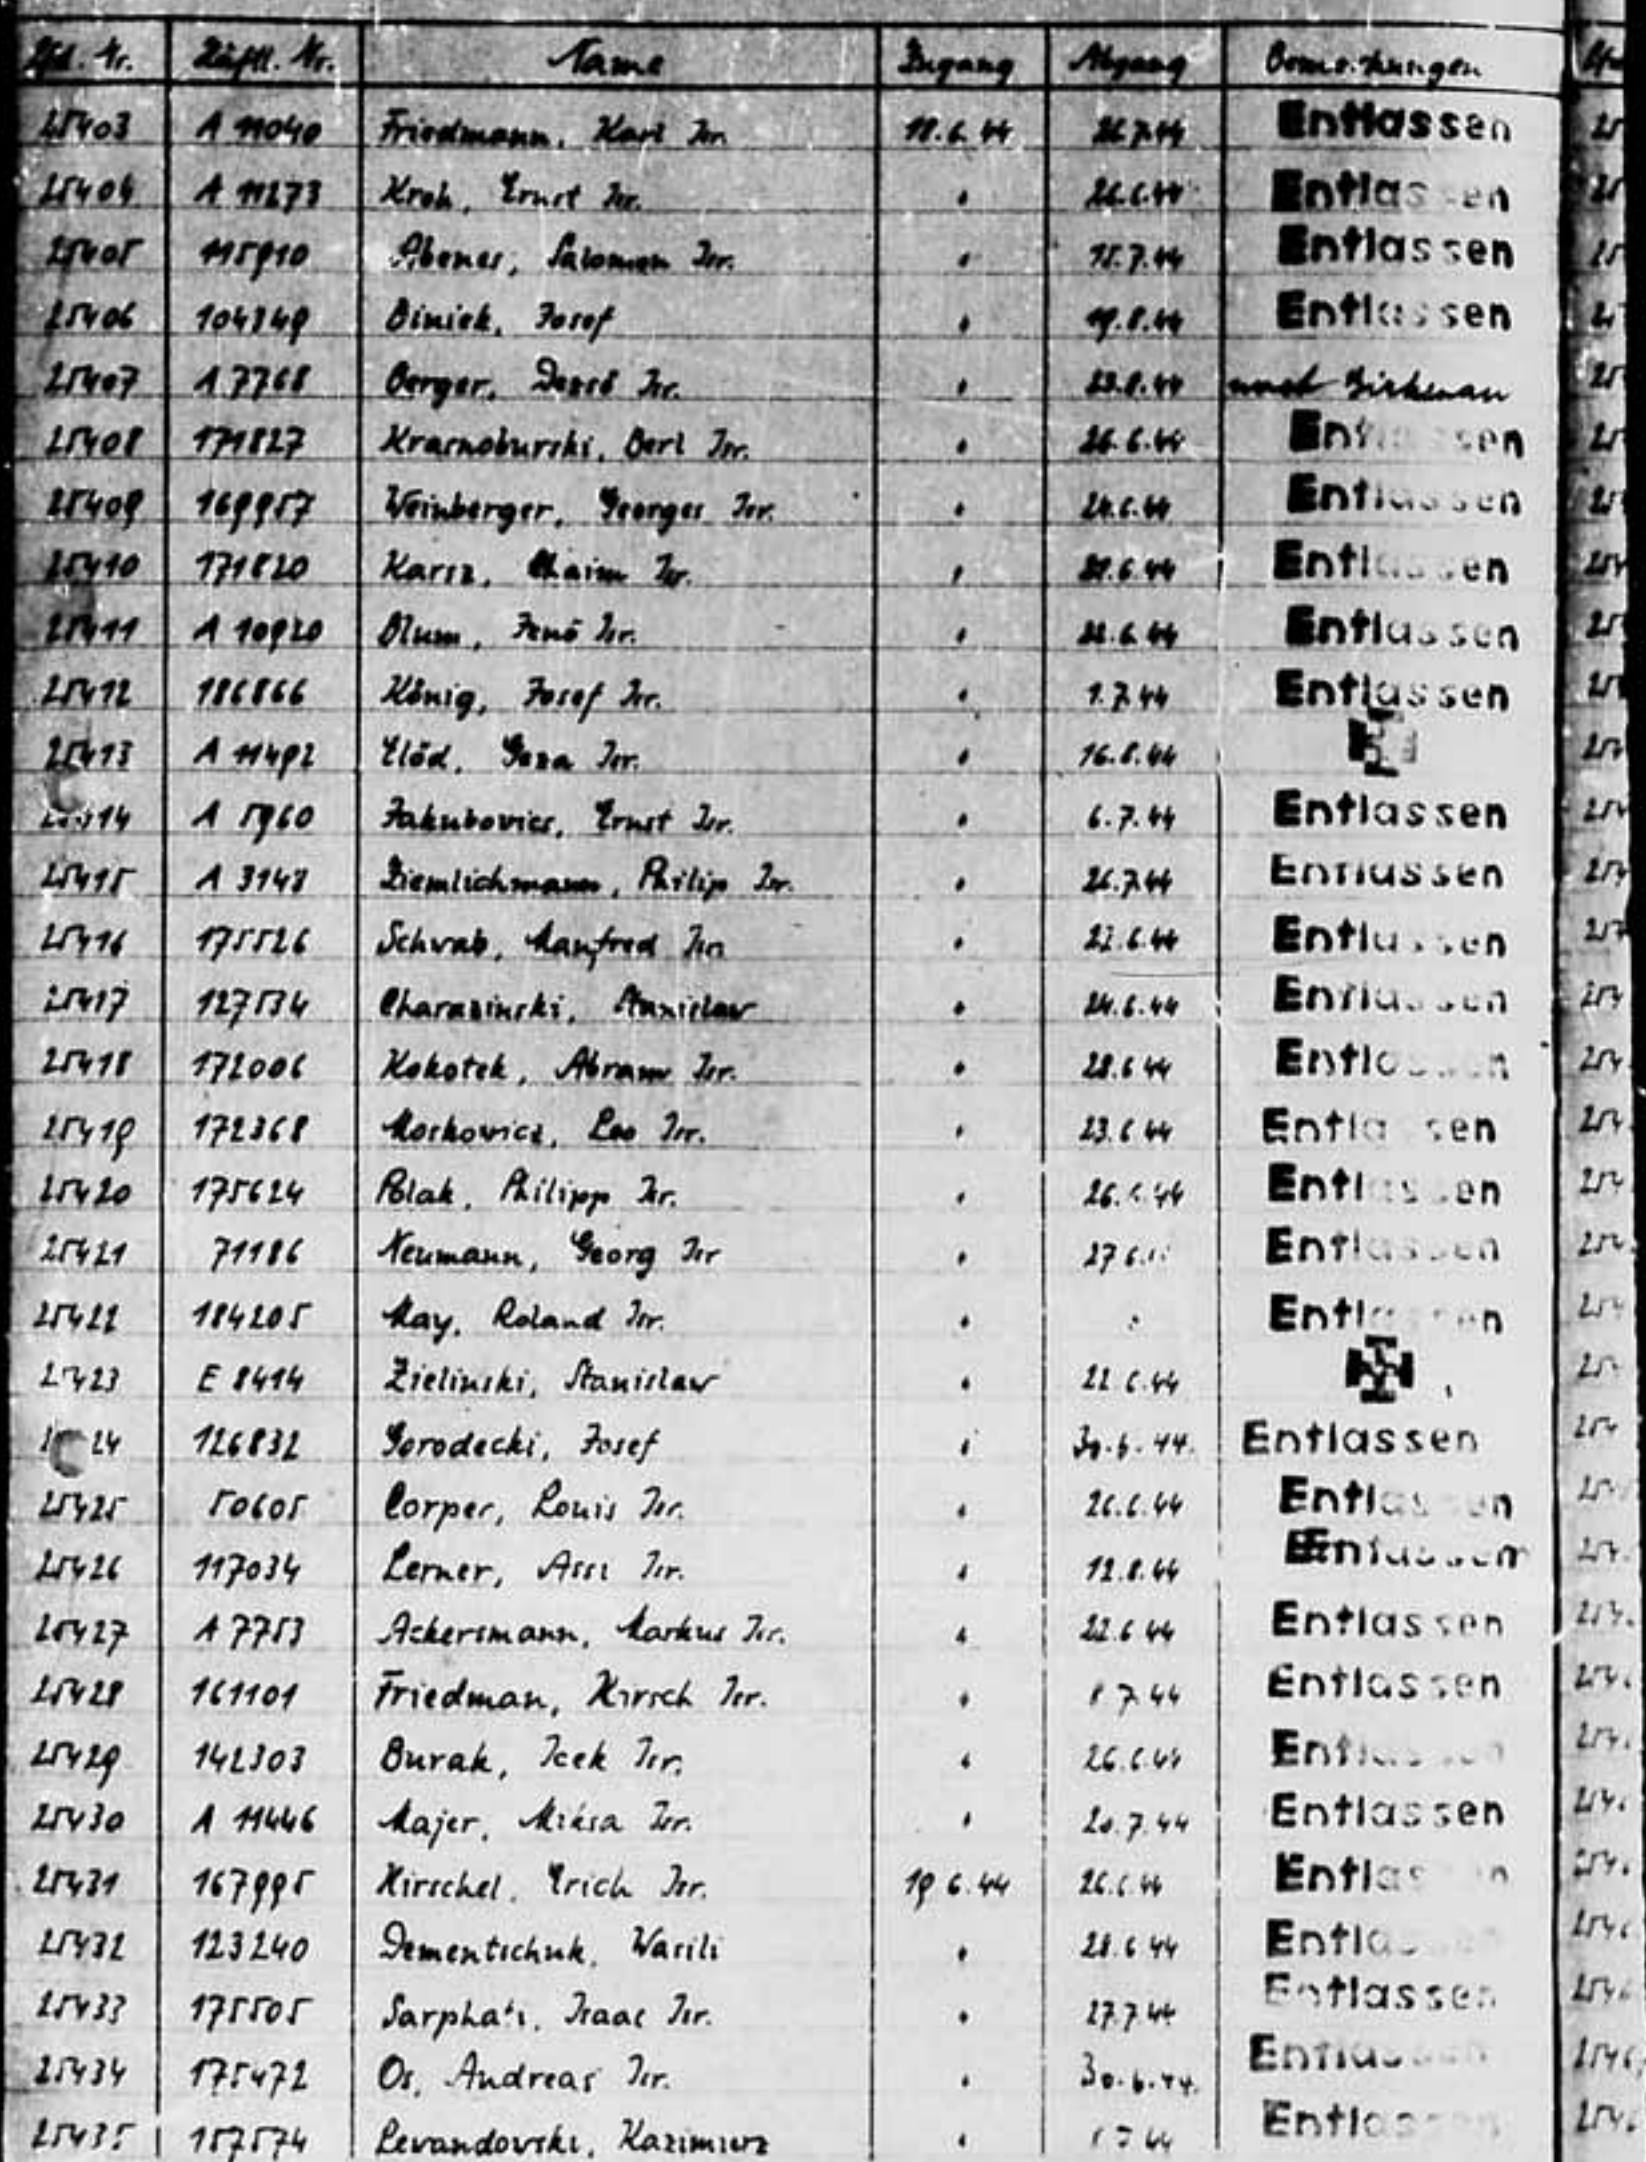 Lfd. Nr. Häftl. Nr. Name Zugang Abgang Bemerkungen
25403 A 11040 Friedmann, Karl Isr. 18.6.44 26.7.44 Entlassen
25404 A 11273 Kroh, Ernst Isr. " 26.6.44 Entlassen
25405 115910 Abenes, Salomon Isr. " 15.7.44 Entlassen
25406 104349 Biniek, Josef " 19.8.44 Entlassen
25407 A 7768 Berger, Isr. " 23.8.44 nach Birkenau
25408 171827 Krasnoburski, Berl Isr. " 26.6.44 Entlassen
25409 169957 Weinberger, Georges Isr. " 24.6.44 Entlassen
25410 171820 Karsz, Chaim Isr. " Entlassen
25411 A 10920 Blum, Jenö Isr. " 22.6.44 Entlassen
25412 186866 König, Josef Isr. " 1.7.44 Entlassen
25413 A 11492 Elöd, Geza Isr. " 16.8.44
25414 A 5960 Jakubovics, Ernst Isr. " 6.7.44 Entlassen
25415 A 3148 Ziemlichmann, Philip Isr. " 26.7.44 Entlassen
25416 175526 Schwab, Manfred Isr. " 22.6.44 Entlassen
25417 127534 Charazinski, Stanislaw " 24.6.44 Entlassen
25418 172006 Kokotek, Abram Isr. " 28.6.44 Entlassen
25419 172368 Moskovicz, Leo Isr. " 23.6.44 Entlassen
25420 175624 Polak, Philipp Isr. " 26.6.44 Entlassen
25421 71186 Neumann, Georg Isr " 27.6. Entlassen
25422 184205 May, Roland Isr. " " Entlassen
25423 E 8414 Zielinski, Stanislaw " 22.6.44
25424 126832 Gorodecki, Josef " 30.6.44. Entlassen
25425 50605 Corper, Louis Isr. " 26.6.44 Entlassen
25426 117034 Lerner, Assi Isr. " 12.8.44 Entlassen
25427 A 7753 Ackersmann, Markus Isr. " 22.6.44 Entlassen
25428 161101 Friedman, Hirsch Isr. " 7.44 Entlassen
25429 142303 Burak, Icek Isr. " 26.6.44 Entlassen
25430 A 11446 Majer, Miksa Isr. " 20.7.44 Entlassen
25431 167995 Hirschel, Erich Isr. 19.6.44 26.6.44 Entlassen
25432 123240 Dementschuk, Wasili " 28.6.44 Entlassen
25433 175505 Sarphati, Isaac Isr. " 27.7.44 Entlassen
25434 175472 Os, Andreas Isr. " 30.6.44. Entlassen
25435 157574 Levandovski, Kazimierz " Entlassen